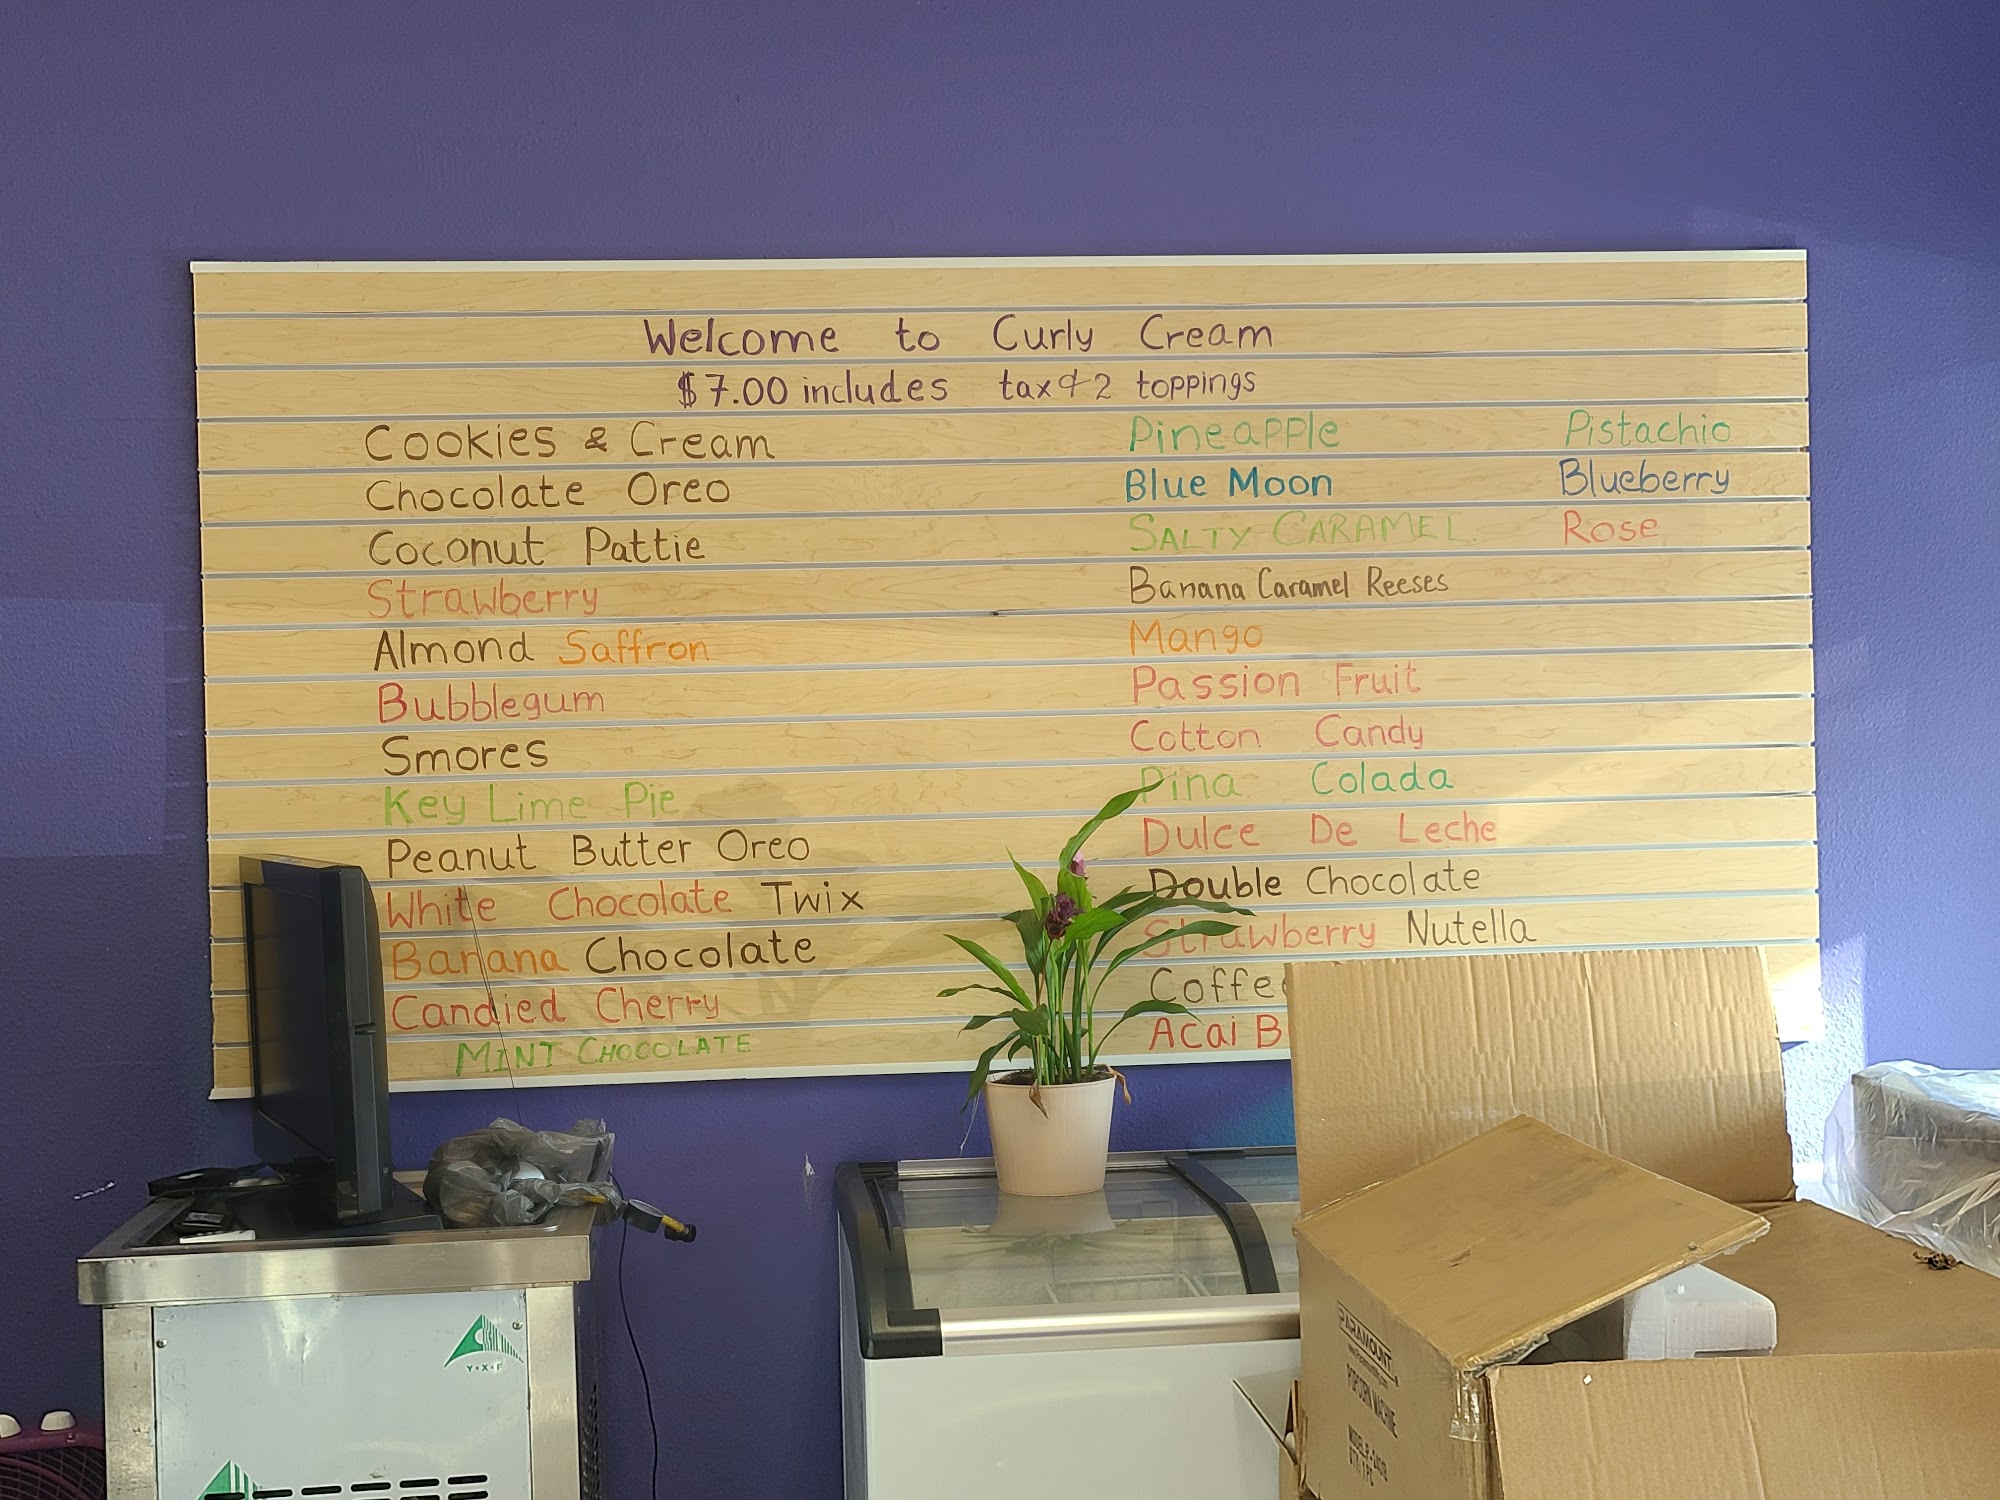 Welcome to Curly Cream
$7.00 includes tax & 2 toppings
Cookies & Cream
Chocolate Oreo
Coconut Pattie
Strawberry
Almond Saffron
Bubblegum
Smores
Key Lime Pie
Peanut Butter Oreo
White Chocolate Twix
Banana Chocolate
Candied Cherry
MINT CHOCOLATE
Pineapple
Blue Moon
SALTY CARAMEL
Banana Caramel Reeses
Mango
Passion Fruit
Cotton Candy
Pina Colada
Dulce De Leche
Double Chocolate
Strawberry Nutella
Coffe
Acai B
Pistachio
Blueberry
Rose
Y·X·F
PARAMOUNT
POPCORN MACHINE
QTY. 1 PC